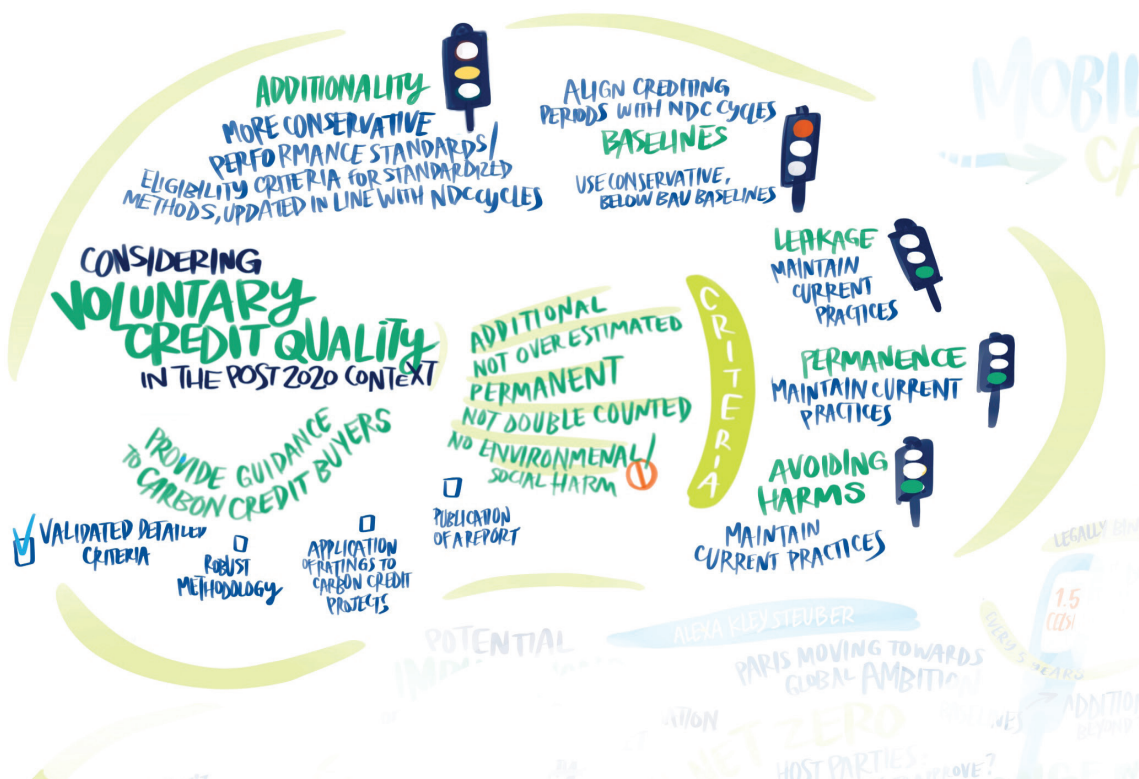 ADDITIONALITY
MORE CONSERVATIVE
PERFORMANCE STANDARDS/
ELIGIBILITY CRITERIA FOR STANDARDIZED
METHODS, UPDATED IN LINE WITH NDC CYCLES
ALIGN CREDITING
PERIODS WITH NDC CYCLES
BASELINES
USE CONSERVATIVE,
BELOW BAU BASELINES
CONSIDERING
VOLUNTARY
CREDIT QUALITY
IN THE POST 2020 CONTEXT
ADDITIONAL
NOT OVER ESTIMATED
PERMANENT
NOT DOUBLE COUNTED
NO ENVIRONMENAL/
SOCIAL HARM
CRITERIA
LEAKAGE
MAINTAIN
CURRENT
PRACTICES
PERMANENCE
MAINTAIN CURRENT
PRACTICES
AVOIDING
HARMS
MAINTAIN
CURRENT PRACTICES
PROVIDE GUIDANCE
TO CARBON CREDIT BUYERS
VALIDATED DETAILED
CRITERIA
ROBUST
METHODOLOGY
APPLICATION
OF RATINGS TO
CARBON CREDIT
PROJECTS
PUBLICATION
OF A REPORT
LEGALLY
1.5
EVERY 5 YEARS
POTENTIAL
ALEXA KLEYSTEUBER
PARIS MOVING TOWARDS
GLOBAL AMBITION
NET ZERO
HOST PARTIES:
BEYOND